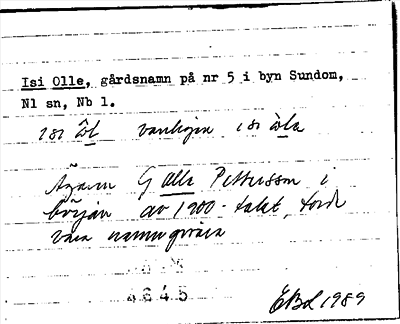 Isi Olle, gårdsnamn på nr 5 i byn Sundom,
Nl sn, Nb l.
vanligen
Ägaren G Olle Pettersson i
början av 1900-talet, torde
vara namngivare
4645
EBd 1989